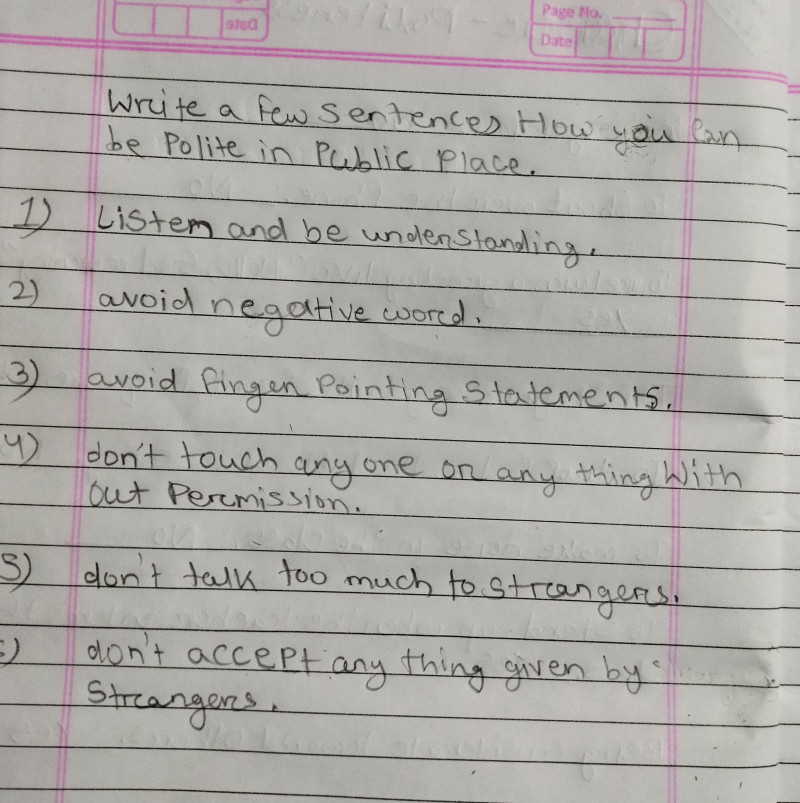 Page No.
Date
Write a few sentences How you can
be Polite in Public Place.
1) Listen and be understanding.
2) avoid negative word.
3) avoid finger Pointing Statements.
4) don't touch any one or any thing With
out Permission.
5) don't talk too much to strangers.
) don't accept any thing given by
Strangers.